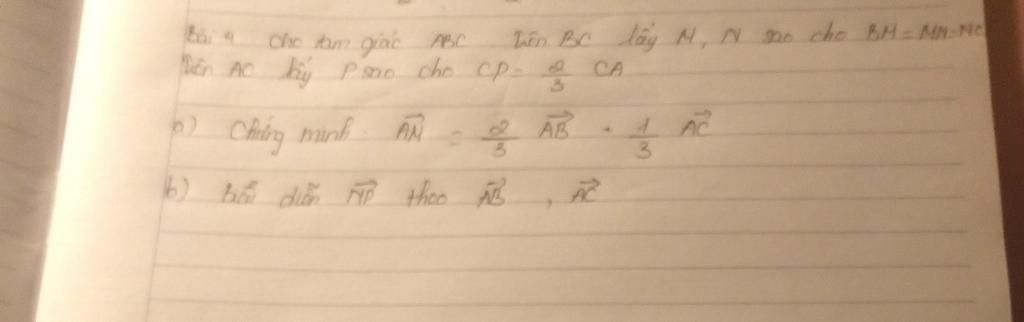 Bài 4 Cho tam giác ABC Trên BC lấy M, N sao cho BM = MN = NC
Trên AC lấy P sao cho CP = 2/3 CA
a) Chứng minh. AN = 2/3 AB + 1/3 AC
b) biểu diễn NP theo AB , AC